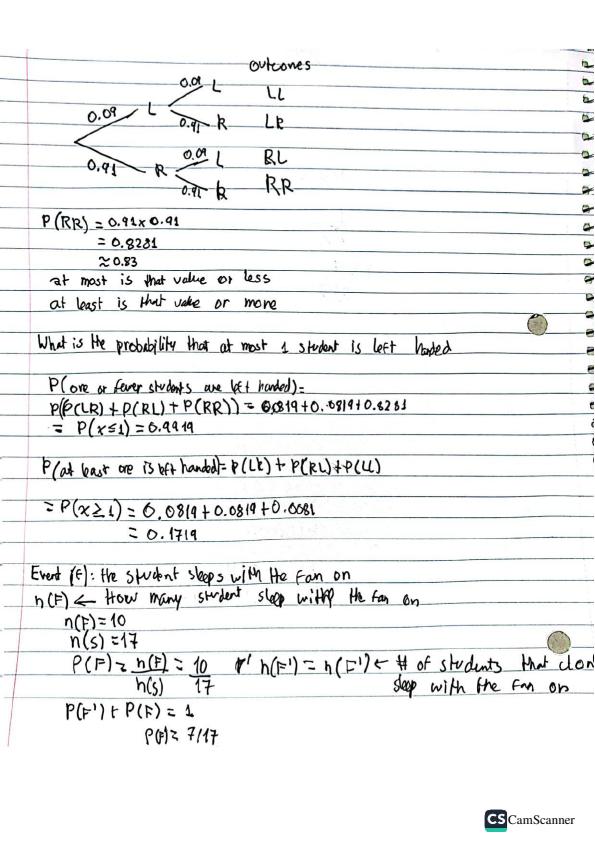 outcomes
0.09 L LL
0.09 L
0.91 R LR
0.91 R 0.09 L RL
0.91 R RR
P(RR) = 0.91 x 0.91
= 0.8281
≈ 0.83
at most is that value or less
at least is that value or more
What is the probability that at most 1 student is left handed
P(one or fewer students are left handed)=
P(P(LR) + P(RL) + P(RR)) = 0.0819+0.0819+0.8281
= P(x≤1) = 0.9919
P(at least one is left handed)= P(LR) + P(RL)+P(LL)
= P(x≥1) = 0.0819+0.0819+0.0081
= 0.1719
Event (F): the student sleeps with the fan on
n(F) ← How many student sleep with the fan on
n(F)=10
n(s)=17
P(F) = n(F) = 10 n(F') = n(F') ← # of students that don
n(s) 17 sleep with the fan on
P(F') + P(F) = 1
P(F)= 7/17
CS CamScanner